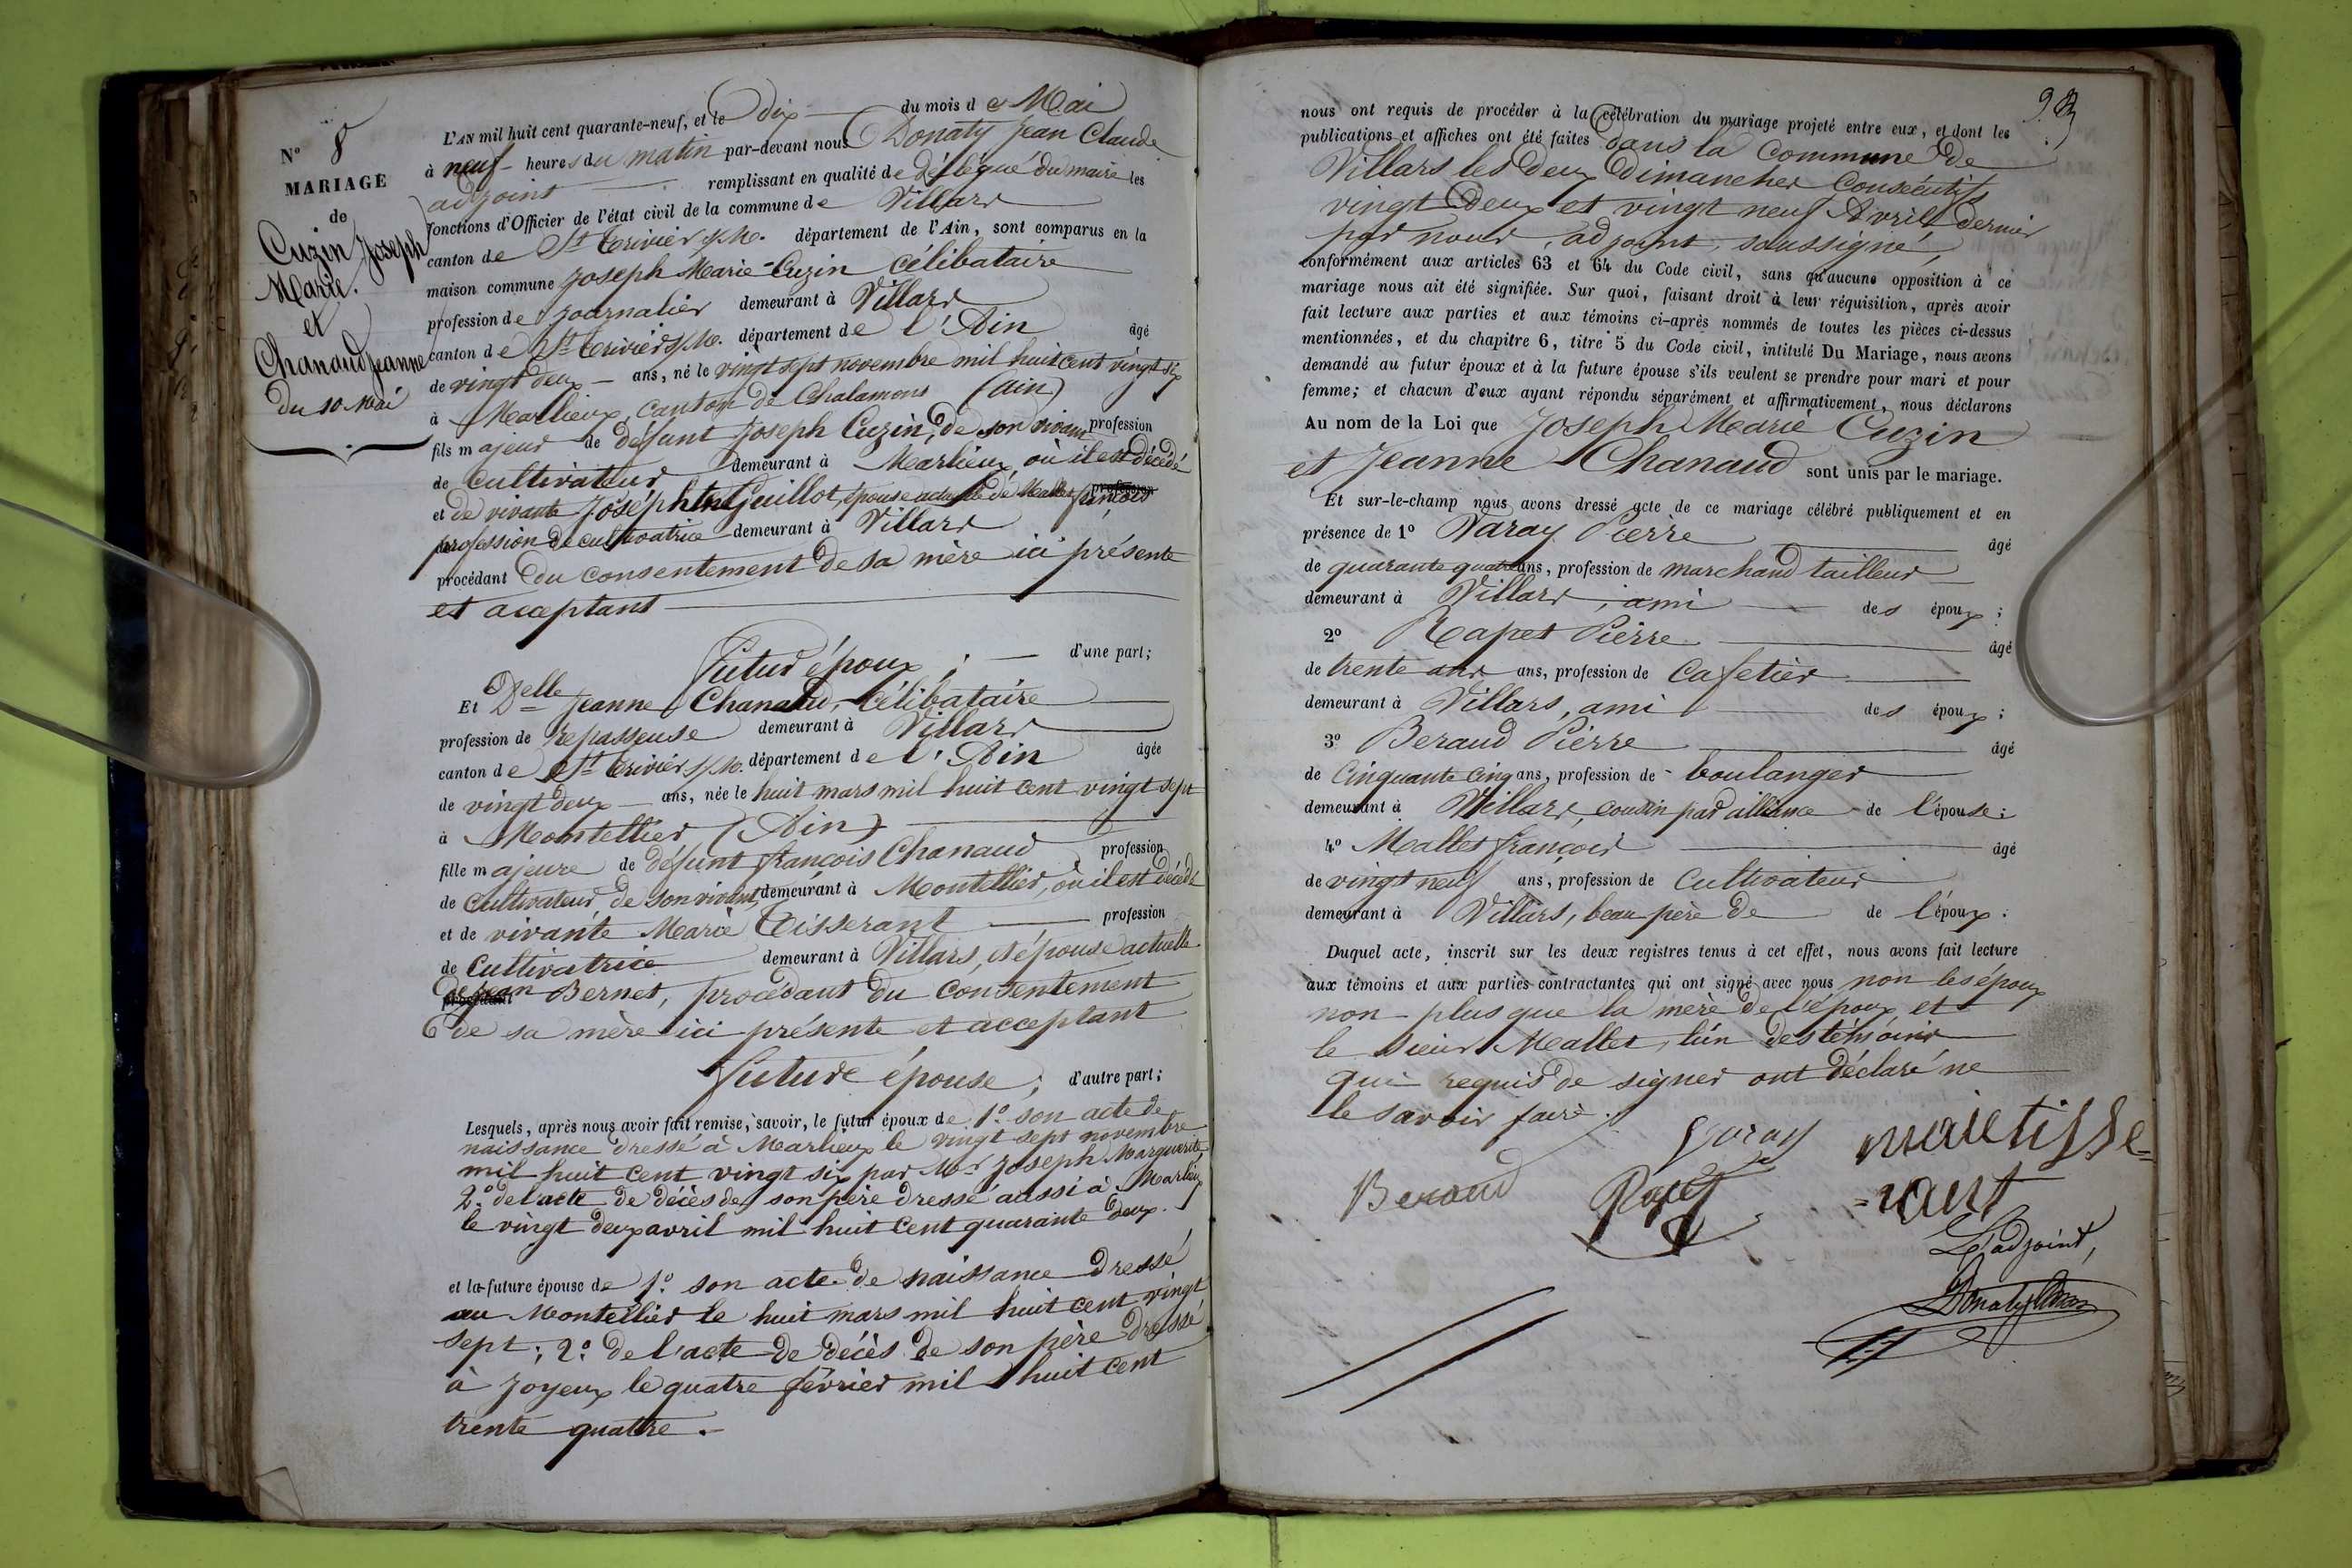 N° 8
MARIAGE
de
Cuzin Joseph
Marie.
et
Chanaud Jeanne
du 10 Mai
L'AN mil huit cent quarante-neuf, et le dix du mois de Mai
à neuf heures du matin par-devant nous Donaty Jean Claude
adjoint remplissant en qualité de délégué du maire les
fonctions d'Officier de l'état civil de la commune de Villars
canton de St Trivier s/M. département de l'Ain, sont comparus en la
maison commune Joseph Marie Cuzin célibataire
profession de journalier demeurant à Villars
canton de St Trivier s/M. département de l'Ain âgé
de vingt deux ans, né le vingt sept novembre mil huit cent vingt six
à Marlieux, canton de Chalamont (ain)
fils majeur de défunt Joseph Cuzin, de son vivant profession
de Cultivateur demeurant à Marlieux, où il est décédé
et de vivante Joséphine Guillot, épouse actuelle de Mallet françois
profession de cultivatrice demeurant à Villars
procédant du consentement de sa mère ici présente
et acceptant
futur époux ; d'une part;
Et Delle Jeanne Chanaud, célibataire
profession de repasseuse demeurant à Villars
canton de St Trivier s/M. département de l'Ain âgée
de vingt deux ans, née le huit mars mil huit cent vingt sept
à Montellier (Ain)
fille majeure de défunt françois Chanaud profession
de cultivateur de son vivant, demeurant à Montellier, où il est décédé
et de vivante Marie Tisserant profession
de Cultivatrice demeurant à Villars, et épouse actuelle
de Jean Bernet, procédant du consentement
de sa mère ici présente et acceptant
future épouse ; d'autre part;
Lesquels, après nous avoir fait remise, savoir, le futur époux de 1° son acte de
naissance dressé à Marlieux le vingt sept novembre
mil huit cent vingt six par Mr Joseph Marguerite,
2° de l'acte de décès de son père dressé aussi à Marlieux
le vingt deux avril mil huit cent quarante deux.
et la future épouse de 1° son acte de naissance dressé
au Montellier le huit mars mil huit cent vingt
sept ; 2° de l'acte de décès de son père dressé
à Joyeux le quatre février mil huit cent
trente quatre.
nous ont requis de procéder à la célébration du mariage projeté entre eux, et dont les
publications et affiches ont été faites dans la commune de
Villars les deux Dimanches consécutifs
vingt deux et vingt neuf Avril dernier
par nous, adjoint, soussigné,
conformément aux articles 63 et 64 du Code civil, sans qu'aucune opposition à ce
mariage nous ait été signifiée. Sur quoi, faisant droit à leur réquisition, après avoir
fait lecture aux parties et aux témoins ci-après nommés de toutes les pièces ci-dessus
mentionnées, et du chapitre 6, titre 5 du Code civil, intitulé Du Mariage, nous avons
demandé au futur époux et à la future épouse s'ils veulent se prendre pour mari et pour
femme; et chacun d'eux ayant répondu séparément et affirmativement, nous déclarons
Au nom de la Loi que Joseph Marie Cuzin
et Jeanne Chanaud sont unis par le mariage.
Et sur-le-champ nous avons dressé acte de ce mariage célébré publiquement et en
présence de 1° Varay Pierre âgé
de quarante quatre ans, profession de marchand tailleur
demeurant à Villars, ami des époux ;
2° Rapet Pierre âgé
de trente ans ans, profession de Cafetier
demeurant à Villars, ami des époux ;
3° Beraud Pierre âgé
de Cinquante cinq ans, profession de boulanger
demeurant à Villars, cousin par alliance de l'épouse ;
4° Mallet françois âgé
de vingt neuf ans, profession de Cultivateur
demeurant à Villars, beau père de de l'époux.
Duquel acte, inscrit sur les deux registres tenus à cet effet, nous avons fait lecture
aux témoins et aux parties contractantes qui ont signé avec nous non les époux
non plus que la mère de l'époux et
le sieur Mallet, l'un des témoins
qui requis de signer ont déclaré ne
le savoir faire.
Varay marie tisse=
Beraud Rapet =rant
L'adjoint,
Donaty